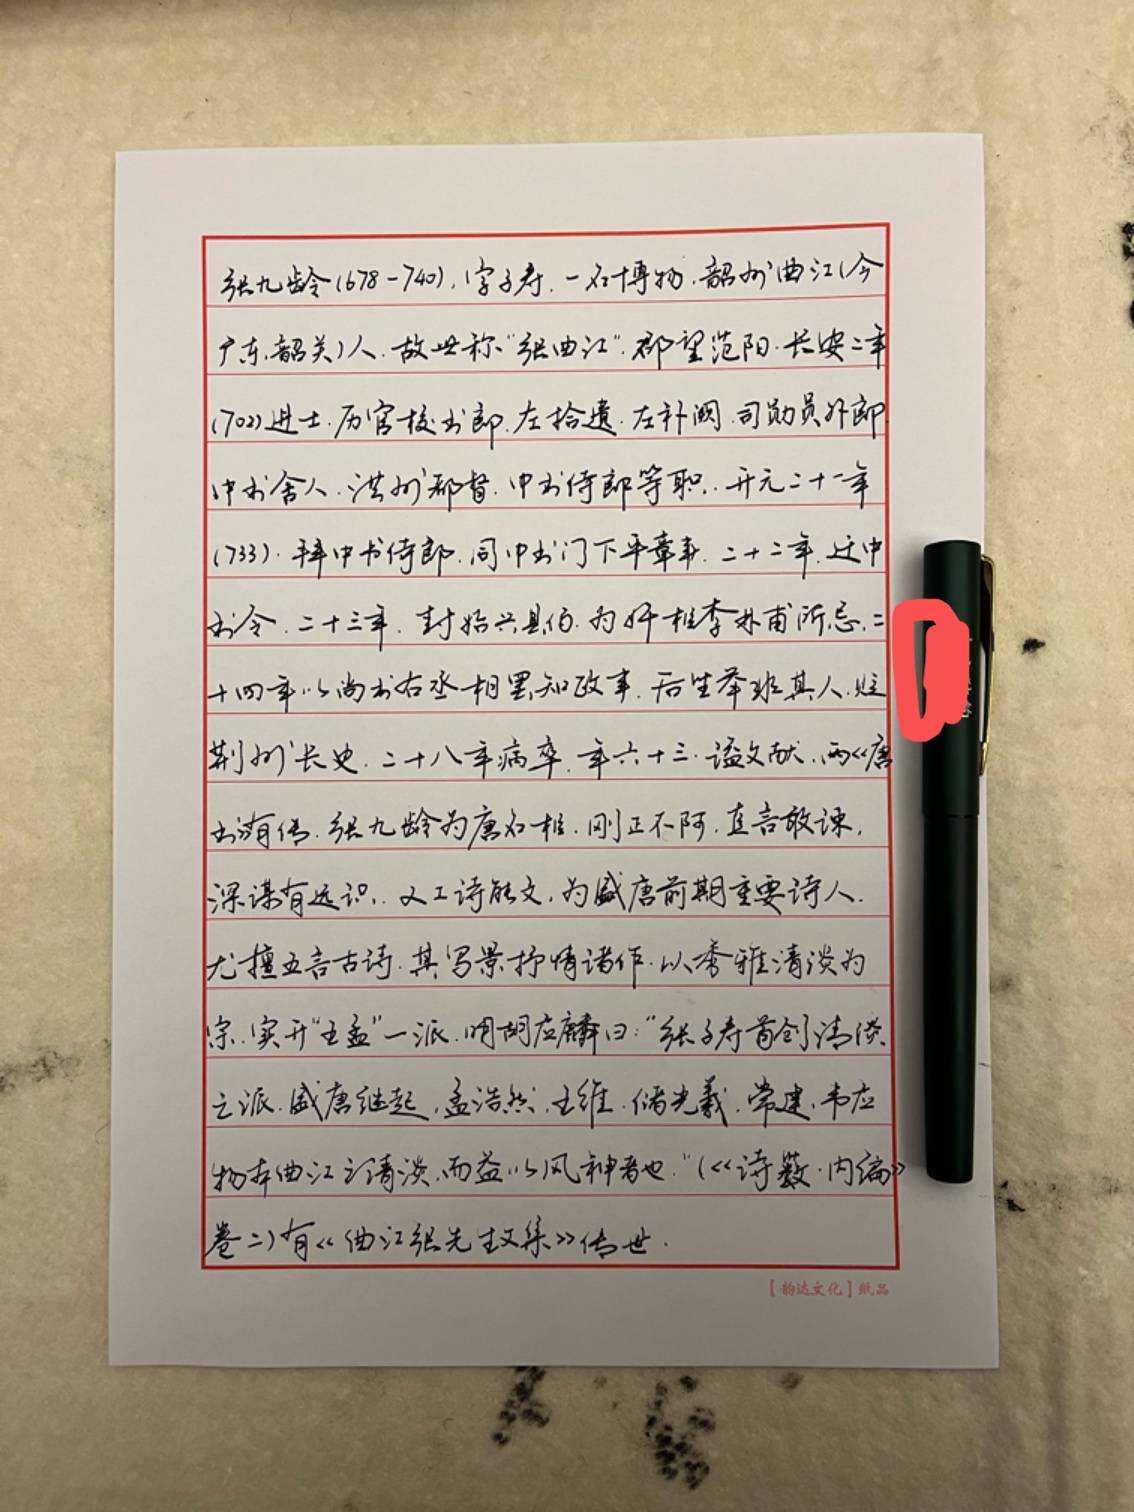 张九龄(678-740),字子寿.一名博物.韶州曲江(今
广东韶关)人.故世称"张曲江".郡望范阳.长安二年
(702)进士.历官校书郎.左拾遗.左补阙.司勋员外郎.
中书舍人.洪州都督.中书侍郎等职.开元二十一年
(733).拜中书侍郎.同中书门下平章事.二十二年.迁中
书令.二十三年.封始兴县伯.为奸相李林甫所忌.二
十四年以尚书右丞相罢知政事.后坐举非其人.贬
荆州长史.二十八年病卒.年六十三.谥文献.两《唐
书》有传.张九龄为唐名相.刚正不阿.直言敢谏.
深谋有远识.又工诗能文,为盛唐前期重要诗人.
尤擅五言古诗.其写景抒情诸作.以秀雅清淡为
宗.实开"王孟"一派.明胡应麟曰:"张子寿首创清淡
之派.盛唐继起,孟浩然.王维.储光羲.常建.韦应
物本曲江之清淡.而益以风神者也."(《诗薮·内编》
卷二)有《曲江张先生文集》传世.
[韵达文化]纸品